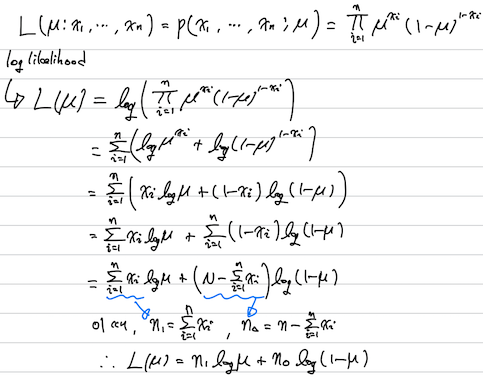 L(μ: x₁, ⋯, xₙ) = p(x₁, ⋯, xₙ; μ) = ∏ᵢ₌₁ⁿ μ^xᵢ (1-μ)^1-xᵢ
log likelihood
↳ L(μ) = log(∏ᵢ₌₁ⁿ μ^xᵢ (1-μ)^1-xᵢ)
= ∑ᵢ₌₁ⁿ (log μ^xᵢ + log (1-μ)^1-xᵢ)
= ∑ᵢ₌₁ⁿ (xᵢ log μ + (1-xᵢ) log (1-μ))
= ∑ᵢ₌₁ⁿ xᵢ log μ + ∑ᵢ₌₁ⁿ (1-xᵢ) log (1-μ)
= ∑ᵢ₌₁ⁿ xᵢ log μ + (N - ∑ᵢ₌₁ⁿ xᵢ) log (1-μ)
이 때, n₁ = ∑ᵢ₌₁ⁿ xᵢ, n₀ = n - ∑ᵢ₌₁ⁿ xᵢ
∴ L(μ) = n₁ log μ + n₀ log (1-μ)